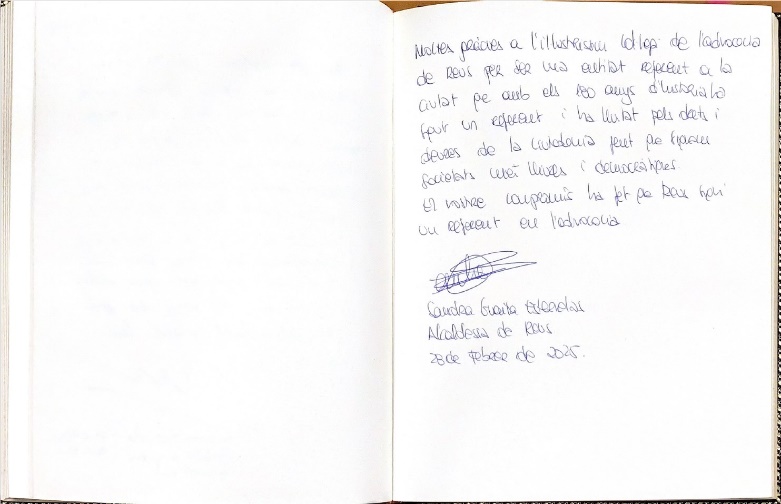 Moltes gràcies a l'il·lustríssim Col·legi de l'advocacia
de Reus per ser una entitat referent a la
ciutat que amb els 180 anys d'història ha
sigut un referent i ha lluitat pels drets i
deures de la ciutadania fent que siguem
societats més lliures i democràtiques
El vostre compromís ha fet que Reus sigui
un referent en l'advocacia
Sandra Guaita Esteruelas
Alcaldessa de Reus
28 de febrer de 2025.